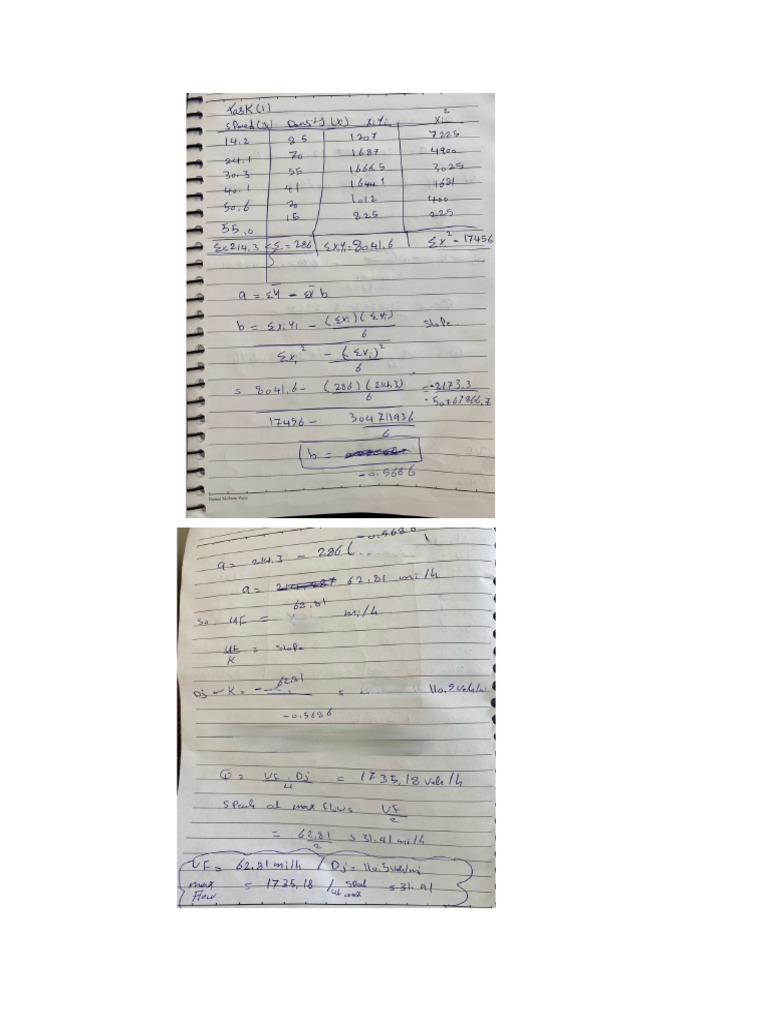 Task (1)
Speed (y) Density (x) xiyi xi²
14.2 85 1207 7225
24.1 70 1687 4900
30.3 55 1666.5 3025
40.1 41 1644.1 1681
50.6 20 1012 400
55.0 15 825 225
Σ=214.3 Σ=286 Σxiyi=8041.6 Σx²=17456
a = Σȳ - Σx̄ b
b = Σxiyi - (Σxi)(Σyi)/6 slope
Σxi² - (Σxi)²/6
= 8041.6 - (286)(214.3)/6 = -2173.3
17456 - 6
b =
-0.5686
a = 214.3 - 286(
a = 62.81 mi/h
62.81
So UF = mi/h
UF/K = slope
Dj K = - 62.81 = 110.5 veh/mi
-0.5686
Q = UF . Dj/4 = 1735.18 veh/h
Speed at max flow = UF/2
= 62.81/2 = 31.41 mi/h
UF = 62.81 mi/h / Dj = 110.5 veh/mi
max = 1735.18 / at speed max = 31.41
Flow